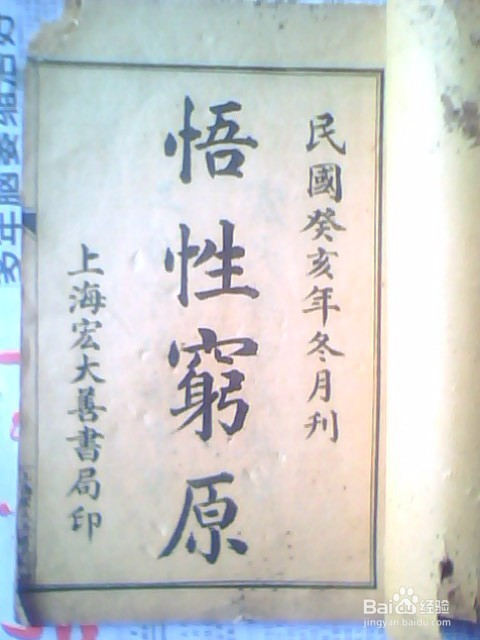 民國癸亥年冬月刊
悟性窮原
上海宏大善書局印
Baidu经验
jingyan.baidu.com